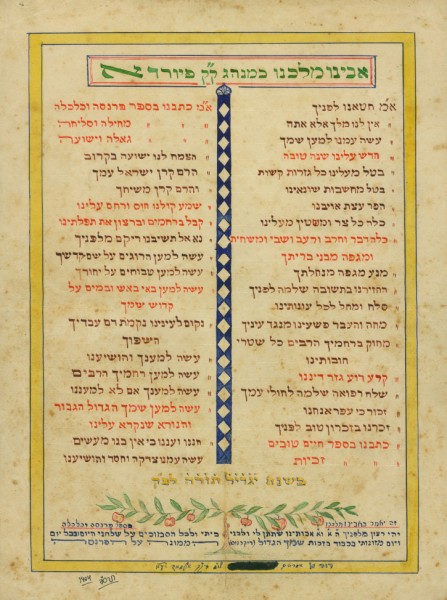 אבינו מלכנו כמנהג ק״ק פיורדא
א״מ חטאנו לפניך
אין לנו מלך אלא אתה
עשה עמנו למען שמך
חדש עלינו שנה טובה
בטל מעלינו כל גזרות קשות
בטל מחשבות שונאינו
הפר עצת אויבנו
כלה כל צר ומשטין מעלינו
כלה דבר וחרב ורעב ושבי ומשחית
ומגפה מבני בריתך
מנע מגפה מנחלתך
החזירנו בתשובה שלמה לפניך
סלח ומחל לכל עונותינו
מחה והעבר פשעינו מנגד עיניך
מחוק ברחמיך הרבים כל שטרי
חובותינו
קרע רוע גזר דיננו
שלח רפואה שלמה לחולי עמך
זכור כי עפר אנחנו
זכרנו בזכרון טוב לפניך
כתבנו בספר חיים טובים
״ ״ זכיות
א״מ כתבנו בספר פרנסה וכלכלה
״ ״ מחילה וסליחה
״ ״ גאלה וישועה
הצמח לנו ישועה בקרוב
הרם קרן ישראל עמך
והרם קרן משיחך
שמע קולנו חוס ורחם עלינו
קבל ברחמים וברצון את תפלתינו
נא אל תשיבנו ריקם מלפניך
עשה למען הרוגים על שם קדשך
עשה למען טבוחים על יחודך
עשה למען באי באש ובמים על
קדוש שמך
נקום לעינינו נקמת דם עבדיך
השפוך
עשה למענך והושיענו
עשה למען רחמיך הרבים
עשה למענך אם לא למעננו
עשה למען שמך הגדול הגבור
והנורא שנקרא עלינו
חננו ועננו כי אין בנו מעשים
עשה עמנו צדקה וחסד והושיענו
בשנת יגדיל תורה לפק
זה יאמר
יהי רצון מלפניך שתתן לי ולבני
ויום מזונותי בכבוד בזכות שמך הגדול
בספר פרנסה וכלכלה
ביתי ולכל הסמוכים על שלחני היום ובכל יום
הממונה על הפרנסה